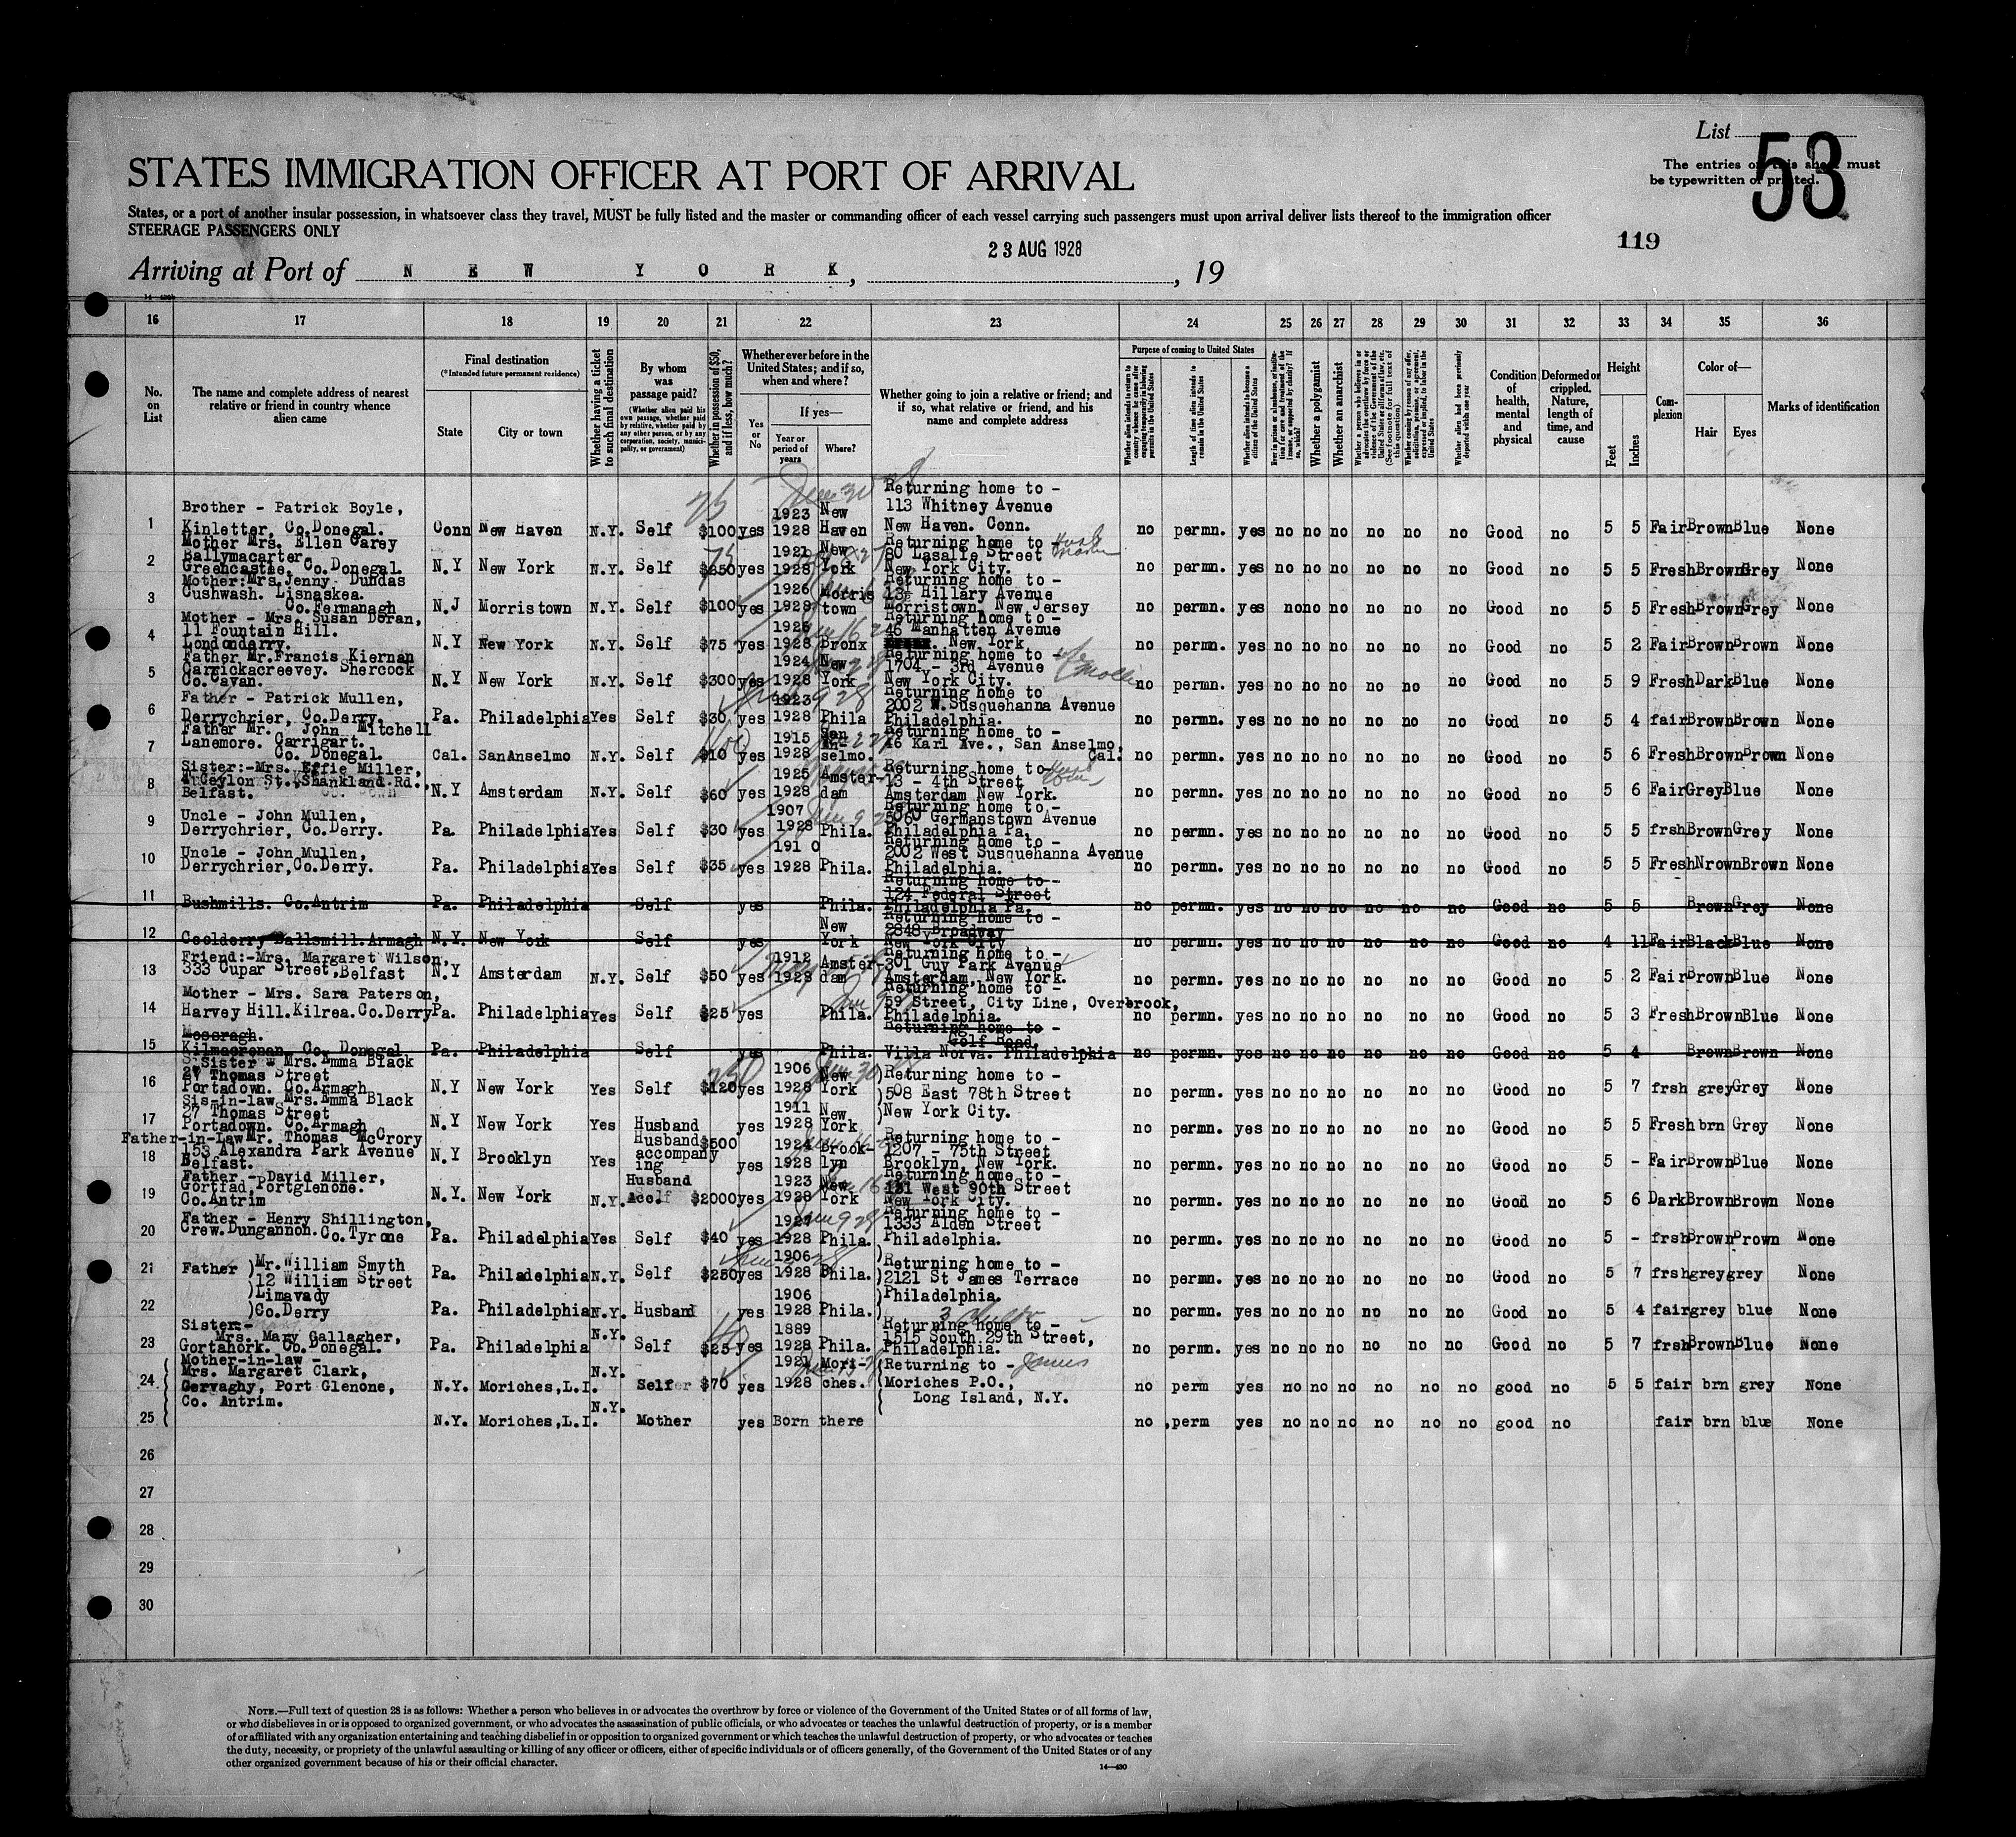 List
53
The entries on this sheet must
be typewritten or printed.
STATES IMMIGRATION OFFICER AT PORT OF ARRIVAL
States, or a port of another insular possession, in whatsoever class they travel, MUST be fully listed and the master or commanding officer of each vessel carrying such passengers must upon arrival deliver lists thereof to the immigration officer
STEERAGE PASSENGERS ONLY
119
23 AUG 1928
Arriving at Port of NEW YORK, , 19
16 17 18 19 20 21 22 23 24 25 26 27 28 29 30 31 32 33 34 35 36
No. on List
The name and complete address of nearest relative or friend in country whence alien came
Final destination
(*Intended future permanent residence)
State
City or town
Whether having a ticket to such final destination
By whom was passage paid?
(Whether alien paid his own passage, whether paid by relative, whether paid by any other person, or by any corporation, society, municipality, or government)
Whether in possession of $50, and if less, how much?
Whether ever before in the United States; and if so, when and where?
Yes or No
If yes—
Year or period of years
Where?
Whether going to join a relative or friend; and if so, what relative or friend, and his name and complete address
Purpose of coming to United States
Length of time alien intends to remain in the United States
Whether alien intends to become a citizen of the United States
Whether a polygamist
Whether an anarchist
Condition of health, mental and physical
Deformed or crippled. Nature, length of time, and cause
Height
Feet
Inches
Complexion
Color of—
Hair
Eyes
Marks of identification
1 Brother - Patrick Boyle, Kinletter, Co.Donegal. Conn New Haven N.Y. Self $100 yes 1923 1928 New Haven Returning home to - 113 Whitney Avenue New Haven. Conn. no permn. yes no no no no no no Good no 5 5 Fair Brown Blue None
2 Mother Mrs. Ellen Carey Ballymacarter Greencastle, Co.Donegal. N.Y New York N.Y. Self $650 yes 1921 1928 New York Returning home to - 80 Lasalle Street New York City. no permn. yes no no no no no no Good no 5 5 Fresh Brown Grey None
3 Mother: Mrs.Jenny Dundas Cushwash. Lisnaskea. Co.Fermanagh N.J Morristown N.Y. Self $100 yes 1926 1928 Morris town Returning home to - Hillary Avenue Morristown, New Jersey no permn. yes no no no no no no Good no 5 5 Fresh Brown Grey None
4 Mother - Mrs. Susan Doran, 11 Fountain Hill. Londonderry. N.Y New York N.Y. Self $75 yes 1925 1928 Bronx Returning home to - 46 Manhatten Avenue New York no permn. yes no no no no no no Good no 5 2 Fair Brown Brown None
5 Father Mr.Francis Kiernan Carrickacreevey. Shercock Co.Cavan. N.Y New York N.Y. Self $300 yes 1924 1928 New York Returning home to - 1704 - 3rd Avenue New York City. no permn. yes no no no no no no Good no 5 9 Fresh Dark Blue None
6 Father - Patrick Mullen, Derrychrier, Co.Derry. Pa. Philadelphia Yes Self $30 yes 1923 1928 Phila Returning home to 2002 W.Susquehanna Avenue Philadelphia. no permn. yes no no no no no no Good no 5 4 fair Brown Brown None
7 Father Mr. John Mitchell Lanemore. Carrigart. Co. Donegal. Cal. SanAnselmo N.Y. Self $10 yes 1915 1928 San An- selmo. Returning home to - 46 Karl Ave., San Anselmo, Cal. no permn. yes no no no no no no Good no 5 6 Fresh Brown Brown None
8 Sister:-Mrs. Effie Miller, 4 Ceylon St. Shankland Rd., Belfast. N.Y Amsterdam N.Y. Self $60 yes 1925 1928 Amster- dam Returning home to- 13 - 4th Street Amsterdam New York. no permn. yes no no no no no no Good no 5 6 Fair Grey Blue None
9 Uncle - John Mullen, Derrychrier, Co.Derry. Pa. Philadelphia Yes Self $30 yes 1907 1928 Phila. Returning home to - 5060 Germanstown Avenue Philadelphia Pa. no permn. yes no no no no no no Good no 5 5 frsh Brown Grey None
10 Uncle - John Mullen, Derrychrier,Co.Derry. Pa. Philadelphia Yes Self $35 yes 191 0 1928 Phila. Returning home to - 2002 West Susquehanna Avenue Philadelphia. no permn. yes no no no no no no Good no 5 5 Fresh Nrown Brown None
11 Bushmills. Co.Antrim Pa. Philadelphia Self yes Phila. Returning home to - 124 Federal Street Philadelphia Pa. no permn. yes no no no no no no Good no 5 5 Brown Grey None
12 Coolderry Ballsmill.Armagh N.Y. New York Self yes New York Returning home to - 2848 Broadway New York City no permn. yes no no no no no no Good no 4 11 Fair Black Blue None
13 Friend:-Mrs. Margaret Wilson, 333 Cupar Street,Belfast N.Y Amsterdam N.Y. Self $50 yes 1912 1928 Amster- dam Returning home to - 301 Guy Park Avenue Amsterdam, New York. no permn. yes no no no no no no Good no 5 2 Fair Brown Blue None
14 Mother - Mrs. Sara Paterson, Harvey Hill.Kilrea.Co.Derry Pa. Philadelphia Yes Self $25 yes Phila. Returning home to - 59 Street, City Line, Overbrook, Philadelphia. no permn. yes no no no no no no Good no 5 3 Fresh Brown Blue None
15 Mossragh. Kilmacrenan. Co. Donegal. Pa. Philadelphia Self yes Phila. Returning home to - Golf Road, Villa Norva. Philadelphia no permn. yes no no no no no no Good no 5 4 Brown Brown None
16 Sister - Mrs.Emma Black 27 Thomas Street Portadown. Co.Armagh N.Y New York Yes Self $120 yes 1906 1928 New York )Returning home to - )508 East 78th Street )New York City. no permn. yes no no no no no no Good no 5 7 frsh grey Grey None
17 Sis-in-law Mrs.Emma Black 27 Thomas Street Portadown. Co.Armagh N.Y New York Yes Husband yes 1911 1928 New York no permn. yes no no no no no no Good no 5 5 Fresh brn Grey None
18 Father-in-Law Mr. Thomas McCrory 153 Alexandra Park Avenue Belfast. N.Y Brooklyn Yes Husband accompany ing $500 yes 1924 1928 Brook- lyn Returning home to - 1207 - 75th Street Brooklyn, New York. no permn. yes no no no no no no Good no 5 - Fair Brown Blue None
19 Father - David Miller, Gortfad,Portglenone. Co.Antrim N.Y. New York N.Y. Husband Acc. $2000 yes 1923 1928 New York Returning home to - 131 West 90th Street New York City. no permn. yes no no no no no no Good no 5 6 Dark Brown Brown None
20 Father - Henry Shillington, Crew.Dungannon.Co.Tyrone Pa. Philadelphia Yes Self $40 yes 1928 Phila. Returning home to - 1333 Alden Street Philadelphia. no permn. yes no no no no no no Good no 5 - frsh Brown Brown None
21 Father )Mr.William Smyth )12 William Street Pa. Philadelphia N.Y. Self $250 yes 1906 1928 Phila. )Returning home to - )2121 St James Terrace )Philadelphia. no permn. yes no no no no no no Good no 5 7 frsh grey grey None
22 )Limavady )Co.Derry Pa. Philadelphia N.Y. Husband yes 1906 1928 Phila. no permn. yes no no no no no no Good no 5 4 fair grey blue None
23 Sister:- Mrs. Mary Gallagher, Gortahork. Co.Donegal. Pa. Philadelphia N.Y. Self $25 yes 1889 1928 Phila. Returning home to - 1515 South 29th Street, Philadelphia. no permn. yes no no no no no no Good no 5 7 frsh Brown Blue None
24 Mother-in-law - Mrs. Margaret Clark, Gervaghy, Port Glenone, Co. Antrim. N.Y. Moriches,L.I. N.Y. Self $70 yes 1921 1928 Mori- ches. (Returning to - James (Moriches P.O., Long Island, N.Y. no perm yes no no no no no no good no 5 5 fair brn grey None
25 N.Y. Moriches,L.I. N.Y. Mother yes Born there no perm yes no no no no no no good no fair brn blue None
26
27
28
29
30
NOTE.—Full text of question 28 is as follows: Whether a person who believes in or advocates the overthrow by force or violence of the Government of the United States or of all forms of law,
or who disbelieves in or is opposed to organized government, or who advocates the assassination of public officials, or who advocates or teaches the unlawful destruction of property, or is a member
of or affiliated with any organization entertaining and teaching disbelief in or opposition to organized government or which teaches the unlawful destruction of property, or who advocates or teaches
the duty, necessity, or propriety of the unlawful assaulting or killing of any officer or officers, either of specific individuals or of officers generally, of the Government of the United States or of any
other organized government because of his or their official character.
14—430